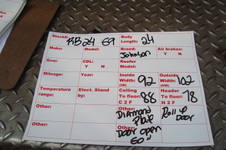 Stock#: RB24 69 Body Length: 24
Make: Model: Brand: Johnson Air brakes: Y N
Eng: CDL: Y N Reefer Model:
Mileage: Year: Inside Width: 92 Outside Width: 102
Temperature range: Elect. Stand by: Ceiling To floor C 2 F 88 Header To floor H 2 F 78
Other: Other: Diamond Plate Roll up Door
Other: Door open 60"